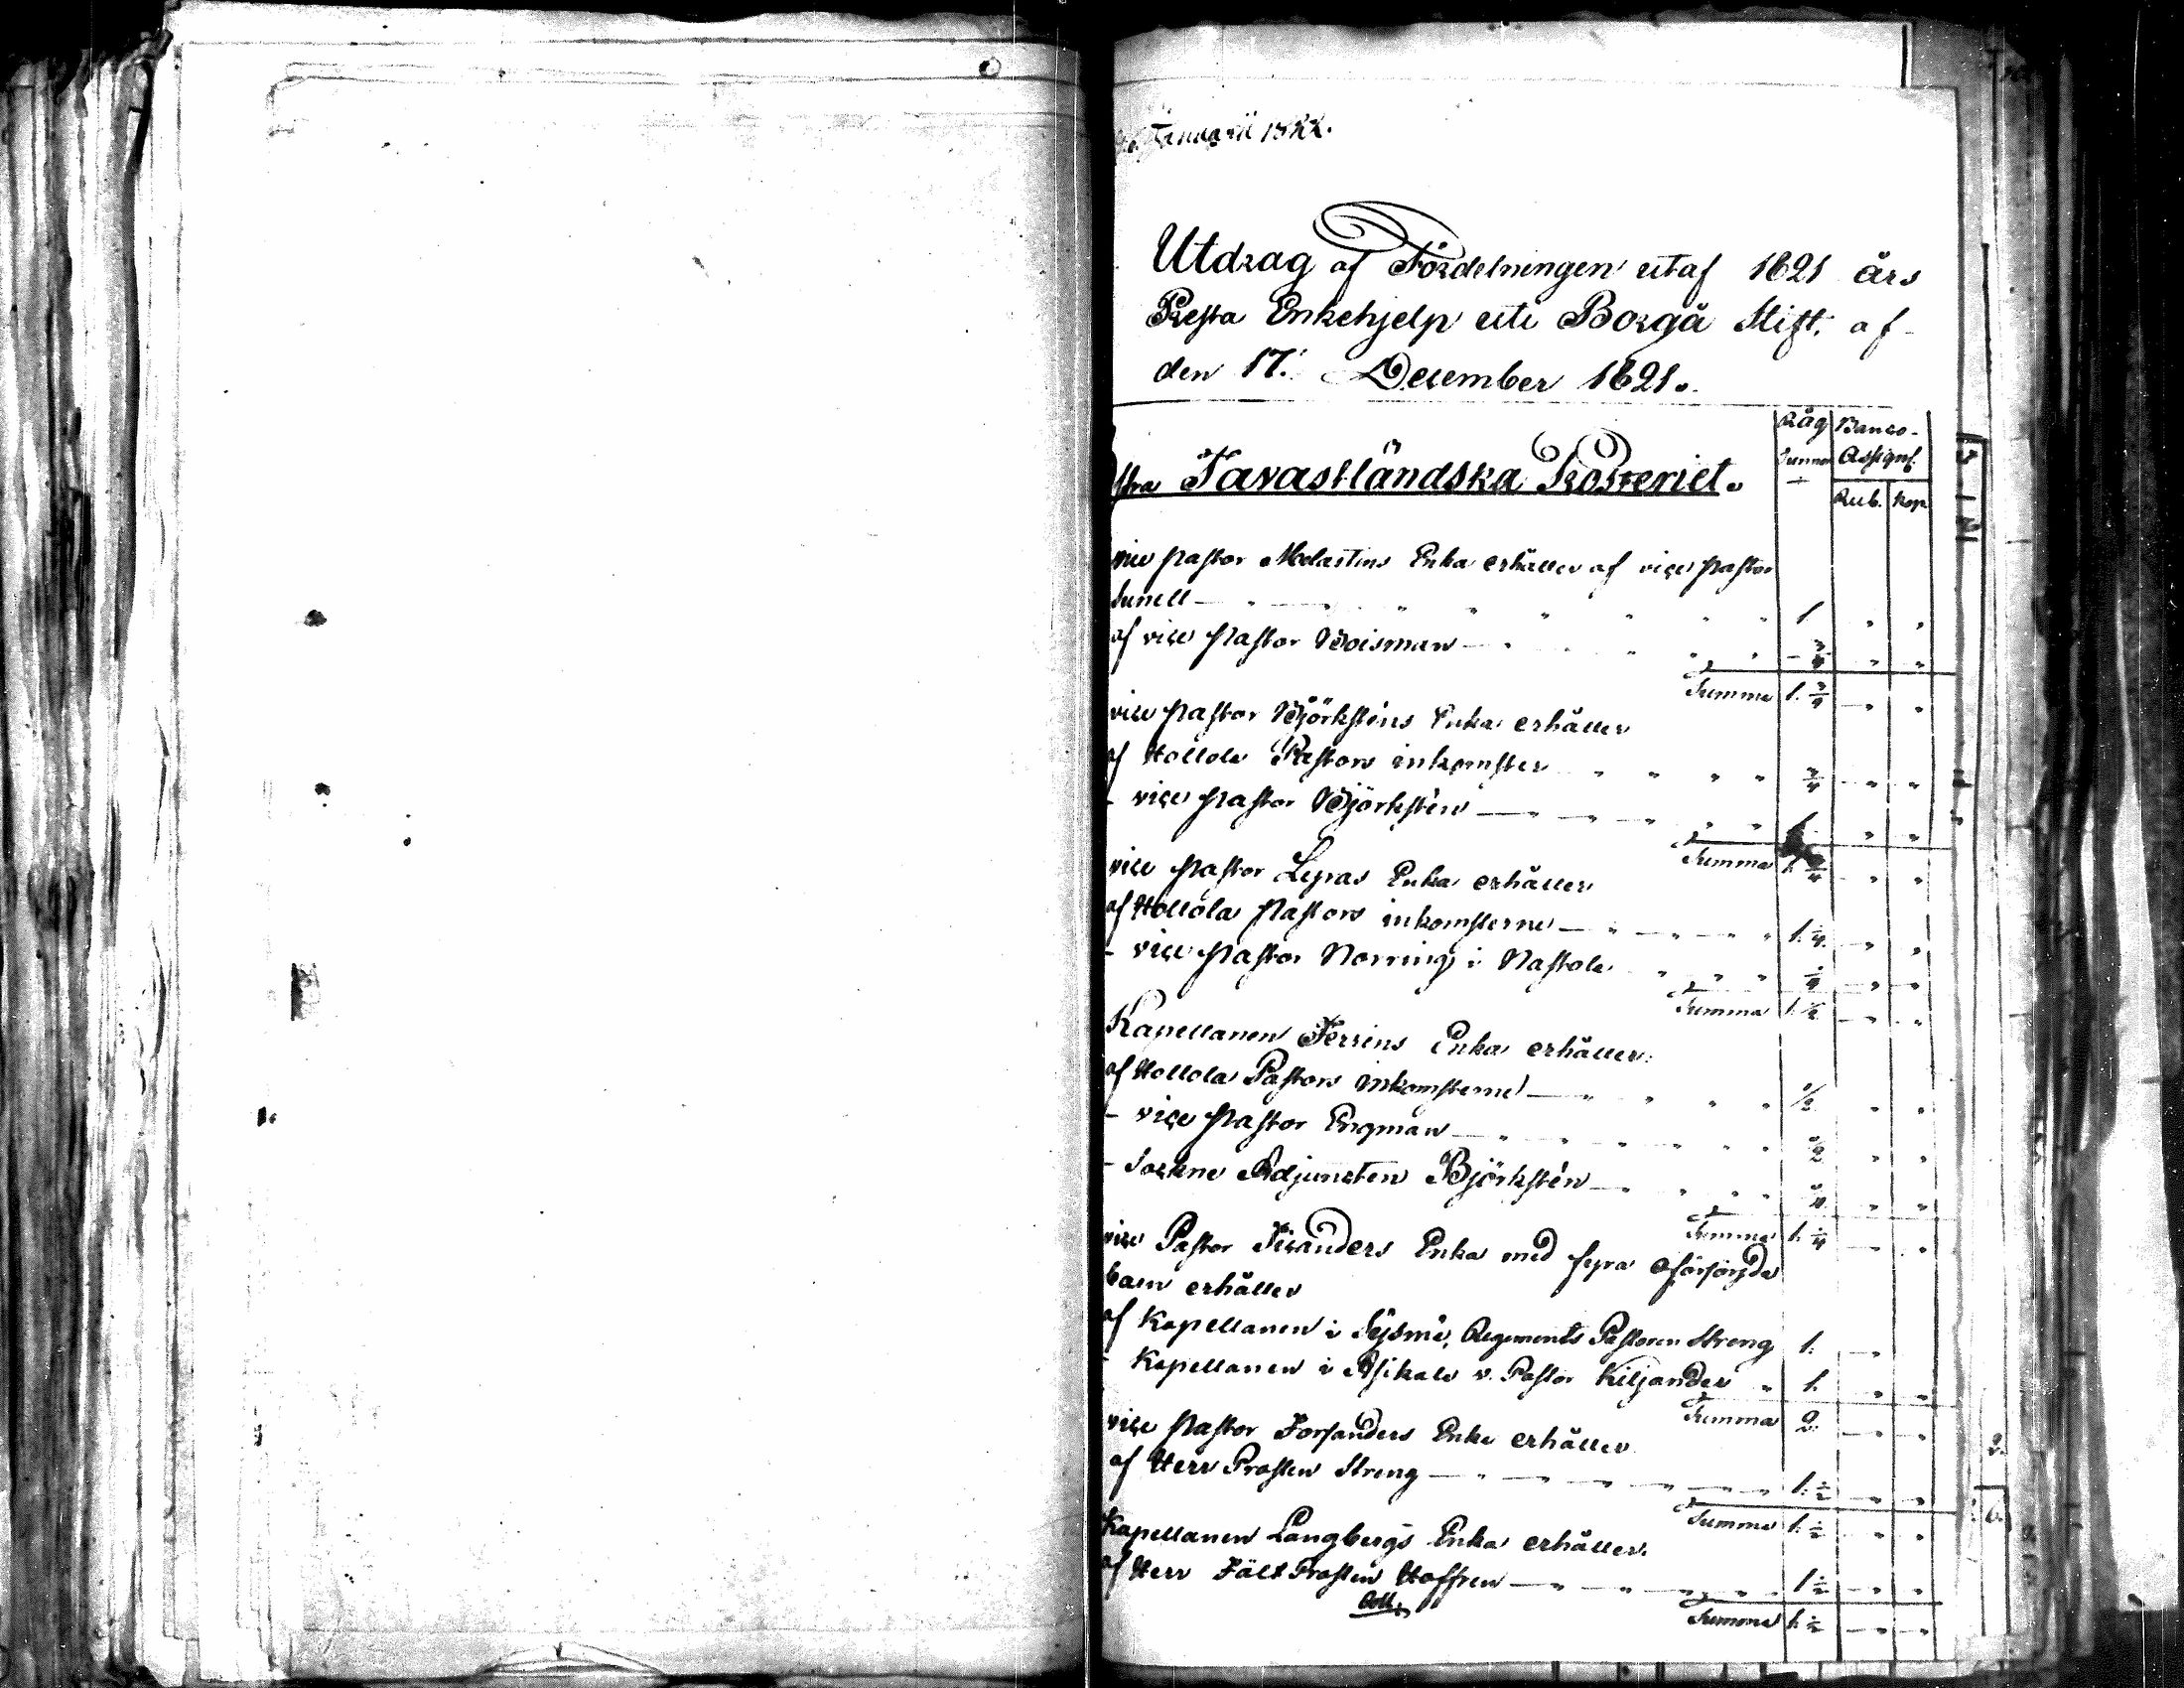 Januarii 1822.
Utdrag af Fördelningen utaf 1821 års
Presta Enkehjelp uti Borgå Stift. af
den 17. December 1821.
Råg Banco-
Tunnor Assignf.
Rub. Kop.
stra Tavastländska Prosteriet.
vice Pastor Melartins Enka erhåller af viçe Pastor
Sunell — " " " " " " 1 " "
af vice Pastor Boisman — " " " 3/4 " "
Summa 1. 3/4 " "
vice Pastor Björksténs Enka erhåller
af Hollola Pastors inkomster " " " " 3/4 " "
- viçe Pastor Björkstén — " " " " " 1. " "
Summa 1. 3/4 " "
vice Pastor Lyras Enka erhåller
af Hollola Pastors inkomsterne — " " " " 1. 1/4. " "
- viçe Pastor Norring i Nastola " " " 1/4 " "
Summa 1. 1/2 " "
Kapellanen Ferrins Enka erhåller:
af Hollola Pastors inkomsterne — " " " " 1/2 " "
- viçe Pastor Engman — " " " " " 1/2 " "
- Sockne Adjuncten Björkstén — " " " " 1/4. " "
Summa 1. 1/4 " "
vice Pastor Enka med fyra oförsörjda
barn erhåller
af Kapellanen i Sysmä, Regements Pastoren Streng 1. "
- Kapellanen i Asikala v. Pastor Kiljander " 1. " "
Summa 2. " "
viçe Pastor Forsanders Enka erhåller
af Herr Prosten Streng — " " " " " 1. 1/2 " "
Summa 1. 1/2 " "
Kapellanen Långbergs Enka erhåller.
af Herr Fält Prosten Hoffren — " " " " 1 1/2 " "
Summa 1. 1/2 " "